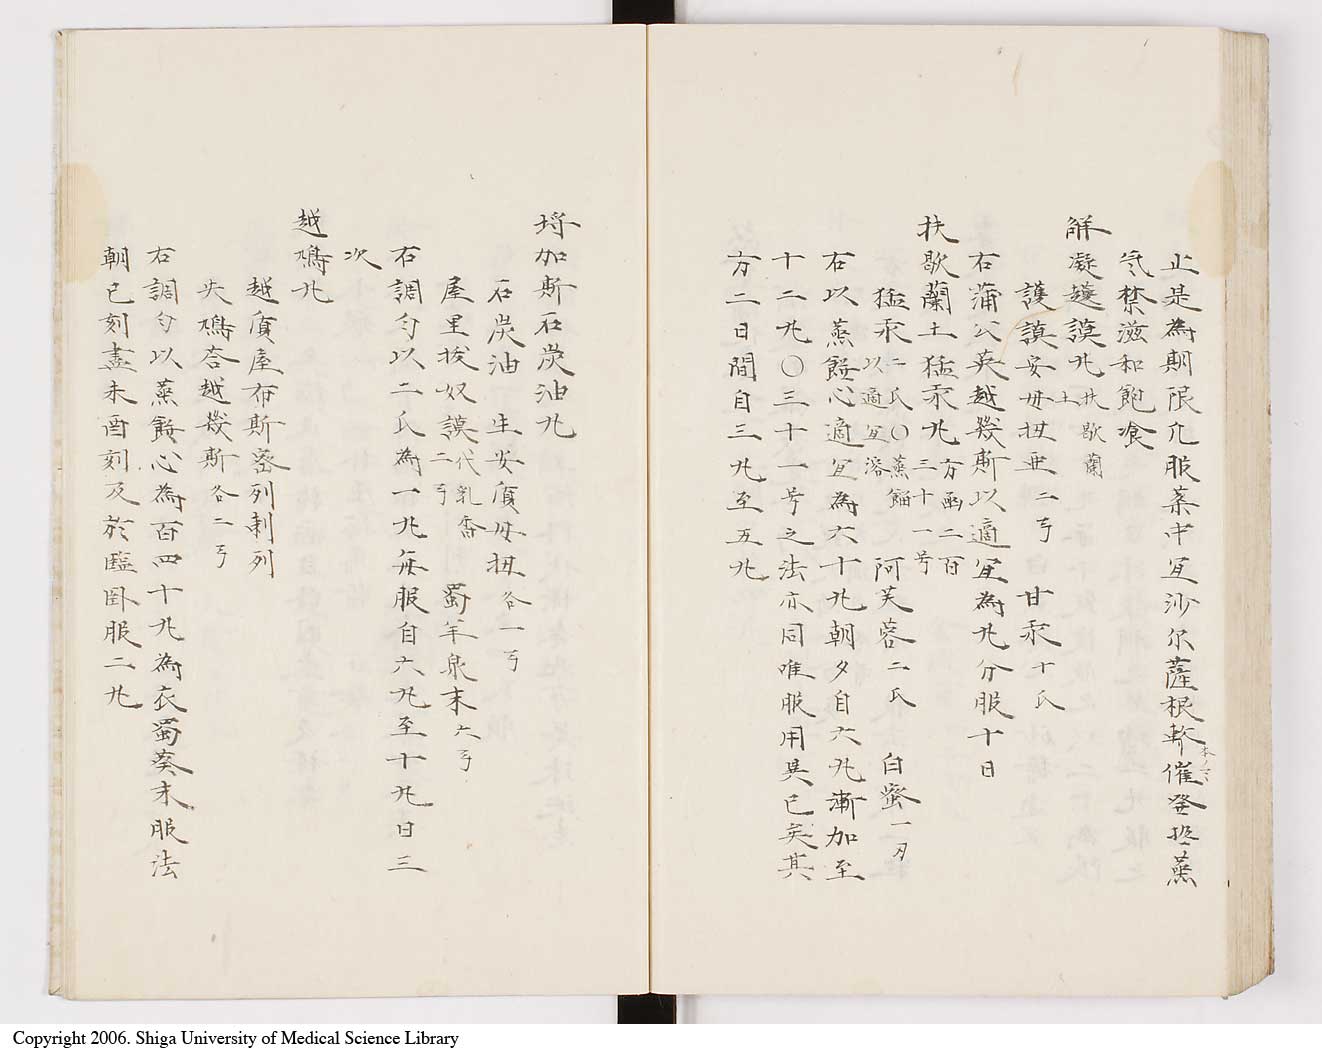 止是為期限凢服薬中宜沙尓薩根斬催登延蒸
气禁滋和飽飡
解凝護謨丸 扶歇蘭土
護謨安母扭亜二㦮 甘汞十氏
右蒲公英越幾斯以適宜為丸分服十日
扶歇蘭土猛汞丸 方函二百三十一号
猛汞二氏〇蒸餾以適宜溶 阿芙蓉二氏 白蜜一刃
右以蒸餅心適宜為六十丸朝夕自六丸漸加至
十二丸〇三十一号之法亦同唯服用異已矣其
方二日間自三丸至五丸
埒加斯石炭油丸
石炭油 生安質母扭各一㦮
屋里抜奴謨 代乳香二㦮 蜀羊泉末六㦮
右調匀以二氏為一丸毎服自六丸至十丸日三
次
越鴆丸
越質屋布斯密列刺列
失鴆荅越幾斯各二㦮
右調匀以蒸餅心為百四十丸為衣蜀葵末服法
朝巳刻盡未酉刻及於臨卧服二丸
Copyright 2006. Shiga University of Medical Science Library